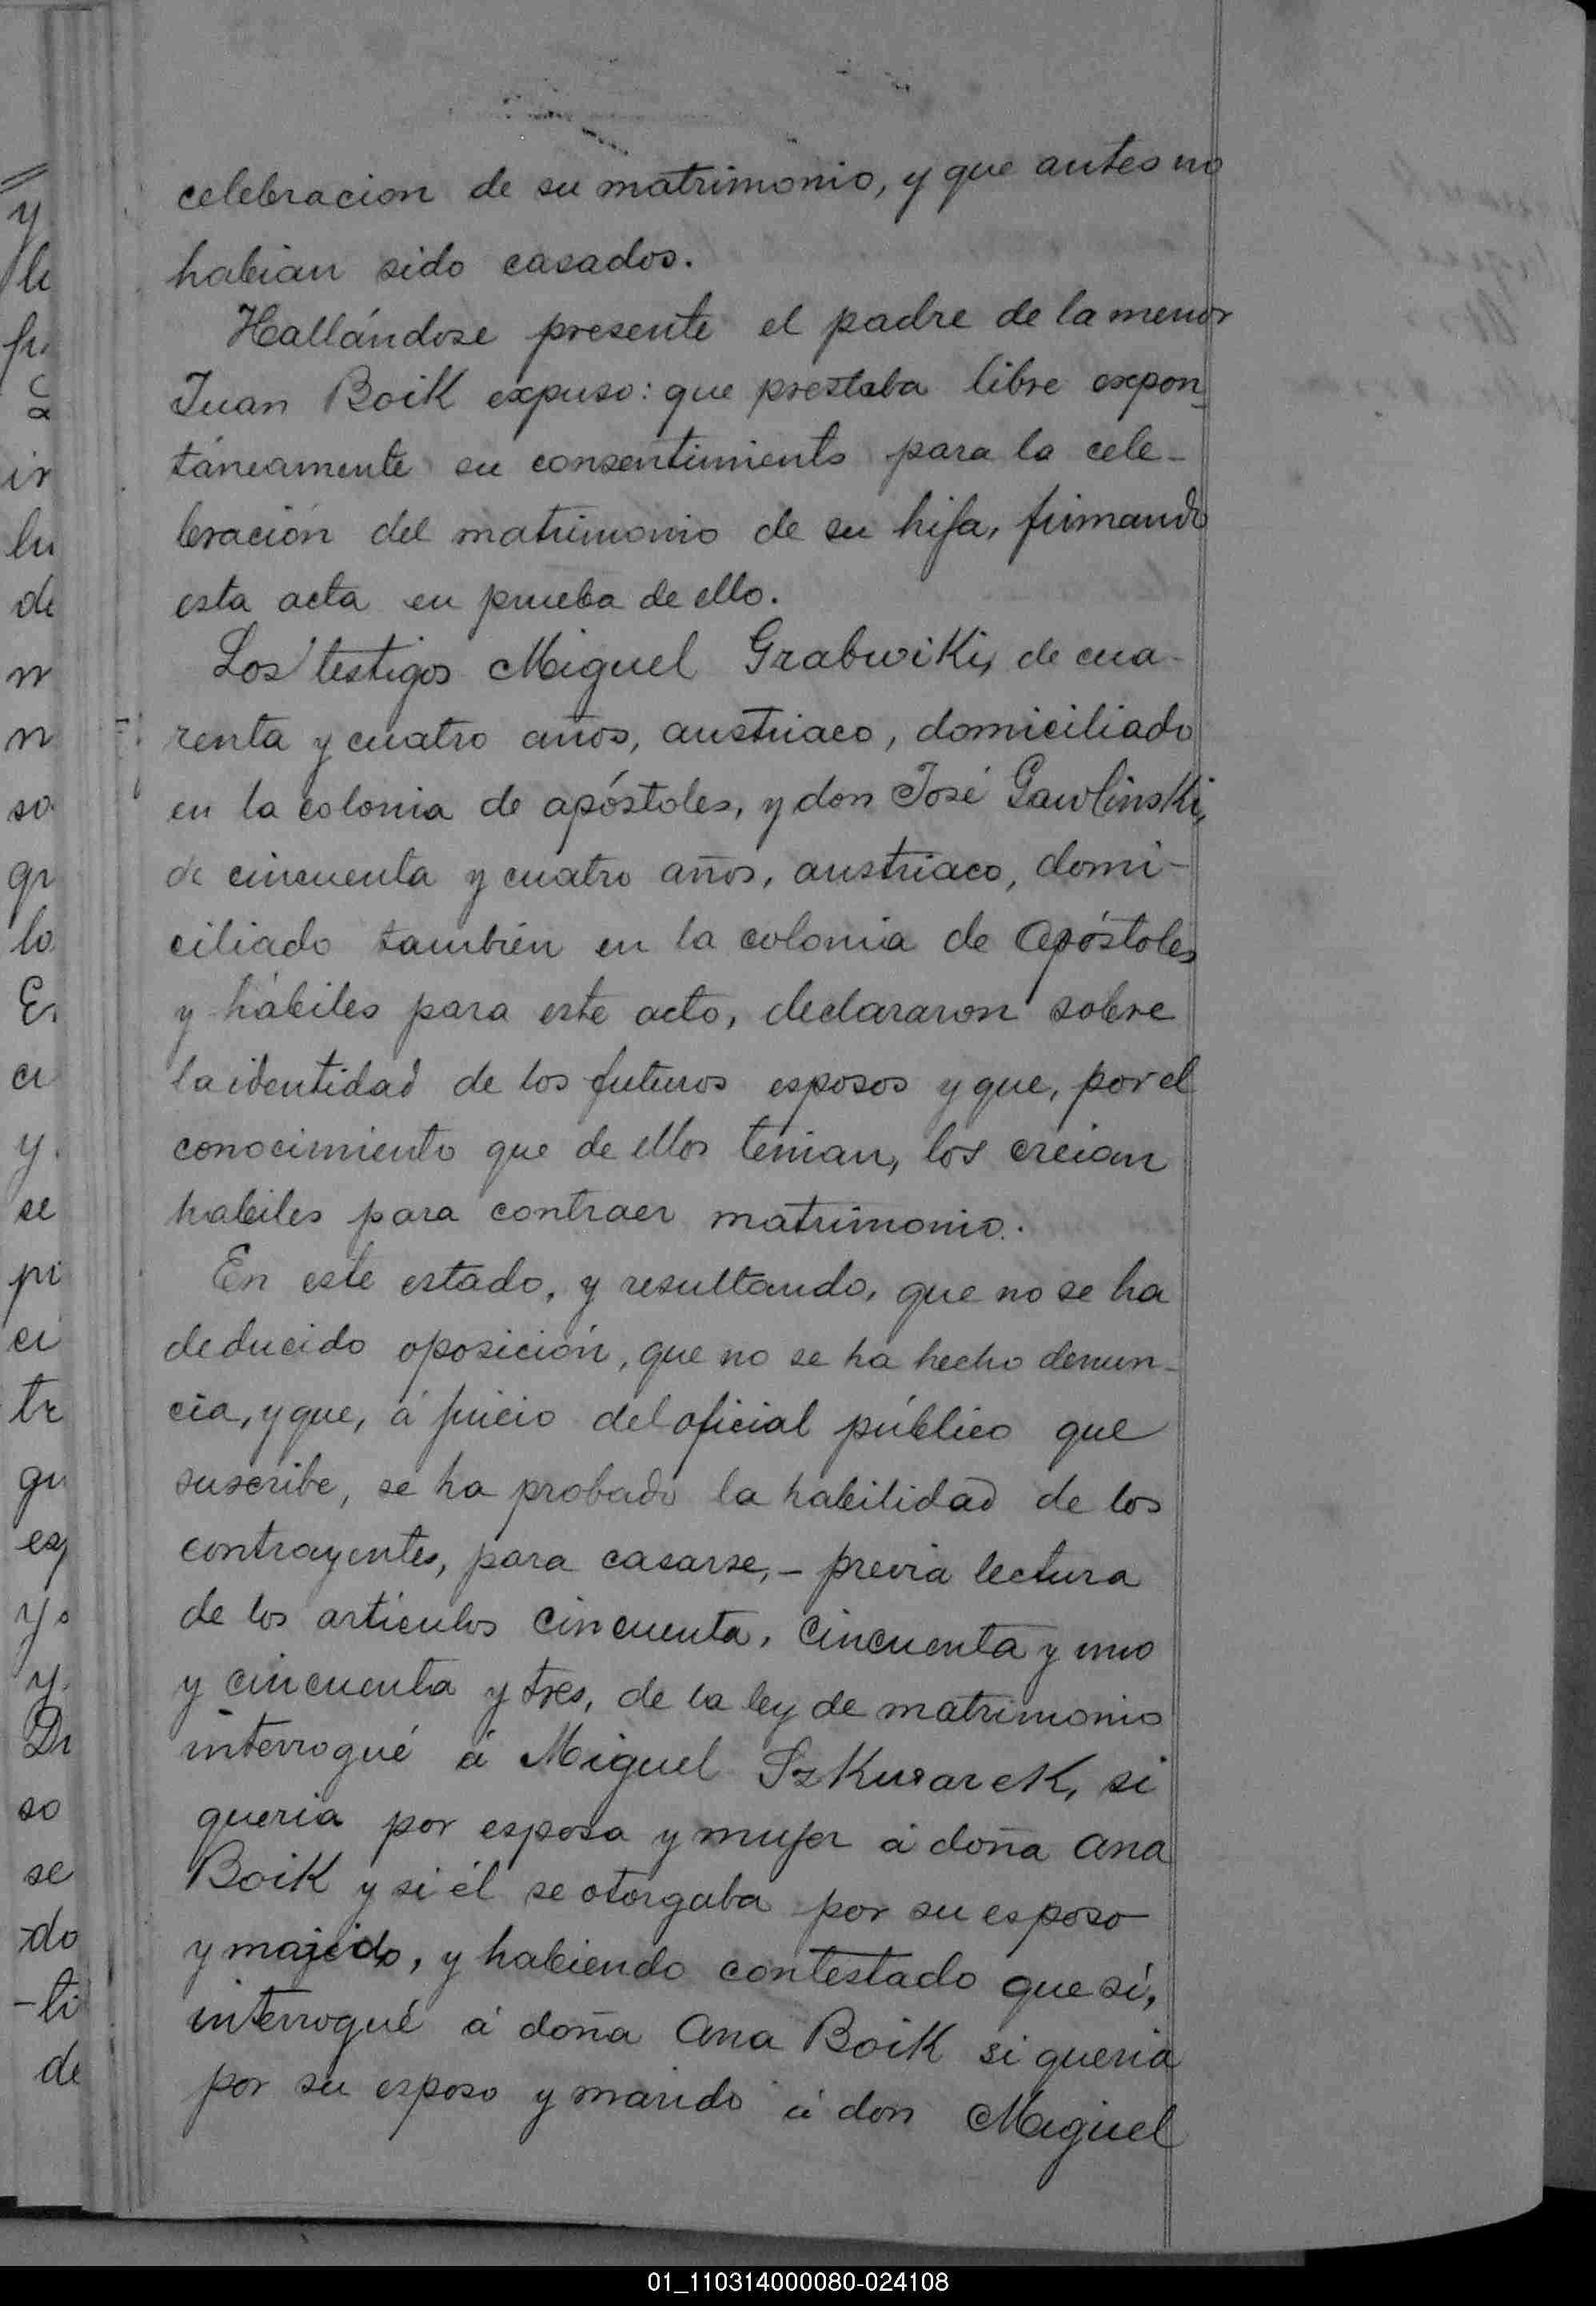 celebracion de su matrimonio, y que antes no
habian sido casados.
Hallándose presente el padre de la menor
Juan Boik expuso: que prestaba libre espon-
táneamente su consentimiento para la cele-
bración del matrimonio de su hija, firmando
esta acta en prueba de ello.
Los testigos Miguel Grabwiki, de cua-
renta y cuatro años, austriaco, domiciliado
en la colonia de apóstoles, y don José Gawlinski,
de cincuenta y cuatro años, austriaco, domi-
ciliado también en la colonia de Apóstoles
y hábiles para este acto, declararon sobre
la identidad de los futuros esposos y que, por el
conocimiento que de ellos tenian, los creian
habiles para contraer matrimonio.
En este estado, y resultando, que no se ha
deducido oposición, que no se ha hecho denun-
cia, y que, á juicio del oficial público que
suscribe, se ha probado la habilidad de los
contrayentes, para casarse, - previa lectura
de los artículos cincuenta, cincuenta y uno
y cincuenta y tres, de la ley de matrimonio
interrogué á Miguel Szkurarek, si
queria por esposa y mujer á doña Ana
Boik y si él se otorgaba por su esposo
y marido, y habiendo contestado que sí,
interrogué á doña Ana Boik si queria
por su esposo y marido á don Miguel
01_110314000080-024108